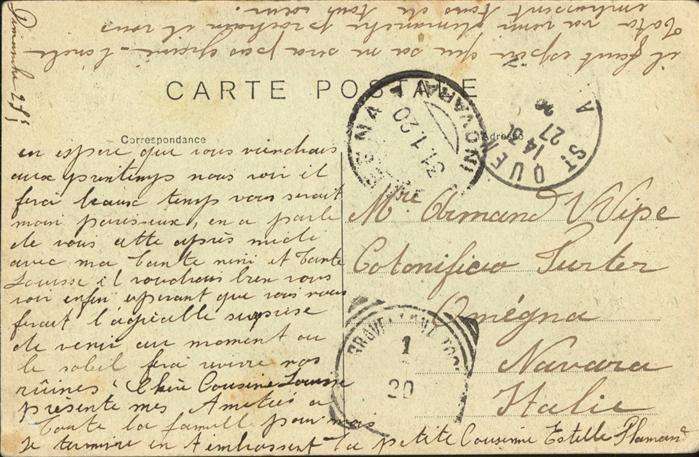 Dimanche
il faut espérer que sa ne sera pas
Tata va venir dimanche prochain et vous
embrassent tous de tout cœur
CARTE POSTALE
Correspondance
Adresse
en espère que vous viendrais
aux printemps nous voir il
ferai beaux temps vous serait
moin paresseux, on a parlé
de vous cette après midi
avec ma Tante nini et Tante
Louisse il voudrais bien vous
voir enfin esperant que vous nous
ferait l'agréable surprise
de venir au moment ou
le soleil ferai vivre nos
rûines Chère Cousine Louisse
présente mes Ametiés a
toute la famille pour moi
Je termine en t'embrassent ta petite Cousinne Estelle Flamand
Mre Armand Wipe
Cotonificio Furter
Omégna
Navara
Italie
ST OUEN
14 30
27
NOVARA
31.1.20
GRAVELLONA TOCE
1
20